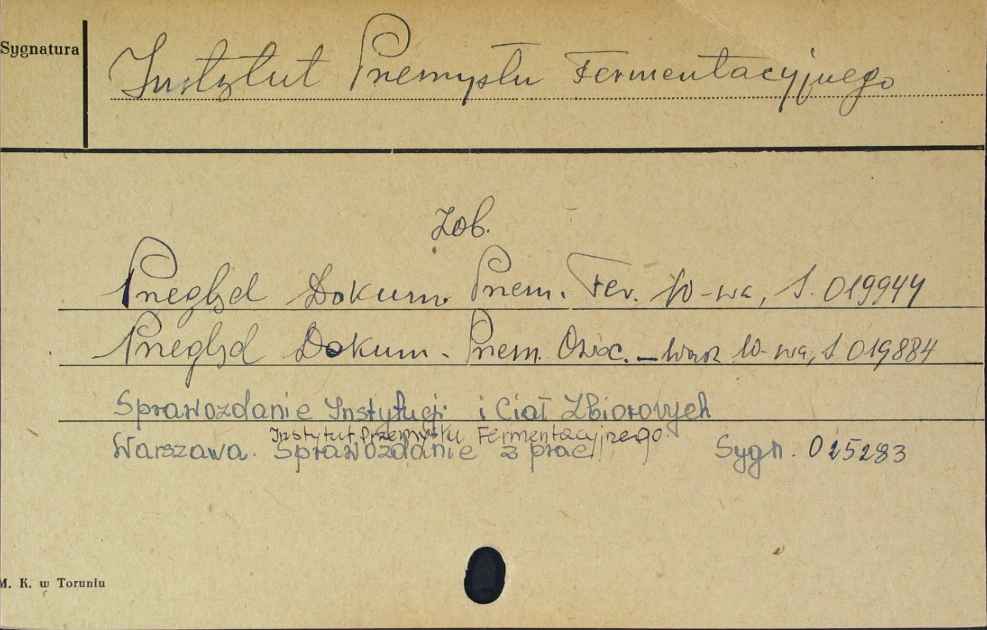 Sygnatura
Instytut Przemysłu Fermentacyjnego
Zob.
Przegląd Dokum. Przem. Fer. W-wa, S. 019944
Przegląd Dokum. Przem. Owoc. – Warz W-wa, S 019884
Sprawozdanie Instytucji i Ciał Zbiorowych
Instytut Przemysłu Fermentacyjnego.
Warszawa. Sprawozdanie z prac Sygn. 025283
M. K. w Toruniu